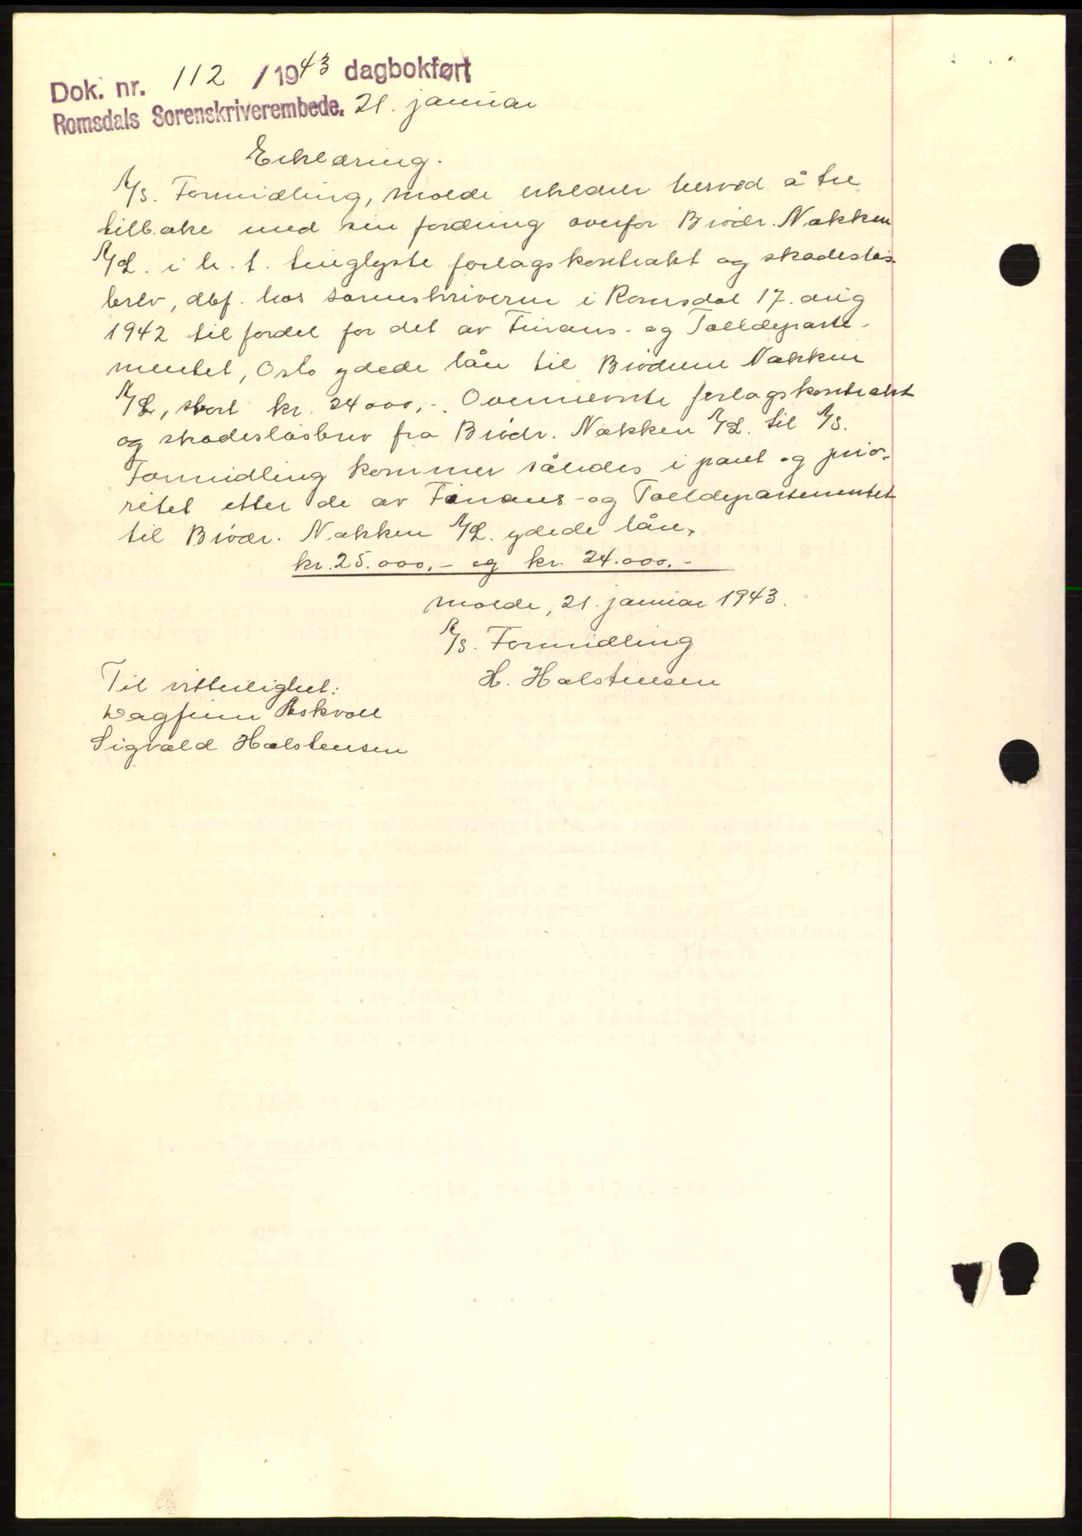 Dok. nr. 112 / 1943 dagbokført
Romsdals Sorenskriverembede. 21. januar
Erklæring.
A/S. Formidling, Molde erklærer herved å tre
tilbake med sin fordring overfor Brødr. Nakken
A/L. i h. t. tinglyste forlagskontrakt og skadesløs-
brev, dbf. hos sorenskriveren i Romsdal 17. aug
1942 til fordel for det av Finans- og Tolldeparte-
mentet, Oslo ydede lån til Brødrene Nakken
A/L, stort kr. 24000,-. Ovennevnte forlagskontrakt
og skadesløsbrev fra Brødr. Nakken A/L. til A/S.
Formidling kommer således i pant og prio-
ritet etter de av Finans- og Tolldepartementet
til Brødr. Nakken A/L. ydede lån,
kr. 25.000,- og kr. 24.000.-
Molde, 21. januar 1943.
A/S. Formidling
H. Halstensen
Til vitterlighet:
Dagfinn Askvoll
Sigvald Halstensen